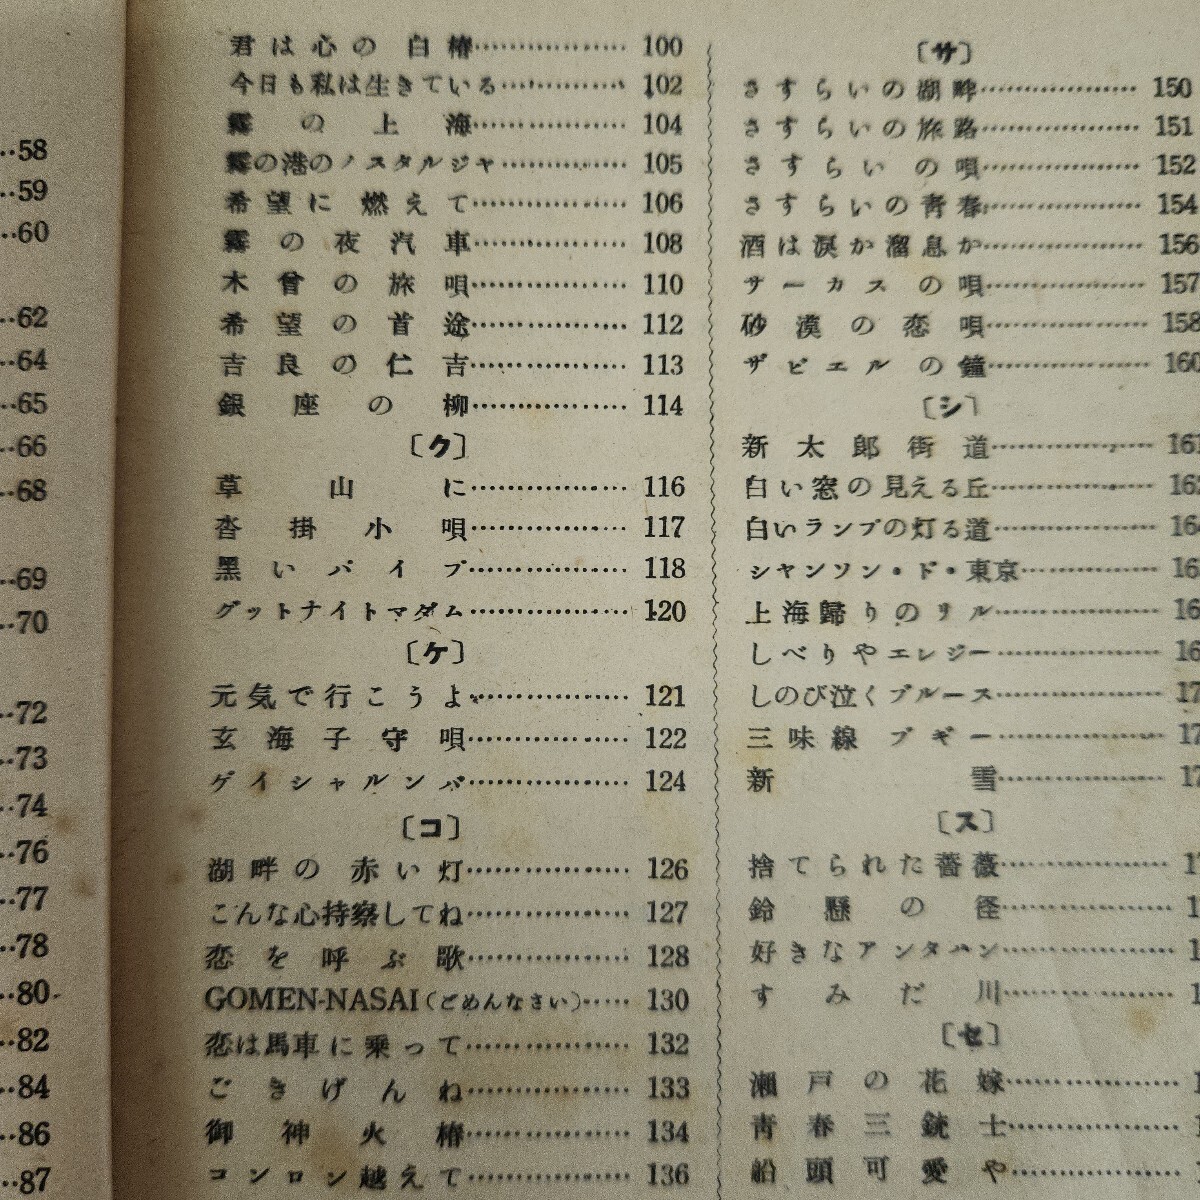 ‥58
‥59
‥60
‥62
‥64
‥65
‥66
‥68
‥69
‥70
‥72
‥73
‥74
‥76
‥77
‥78
‥80
‥82
‥84
‥86
‥87
君は心の白椿……………… 100
今日も私は生きている…………… 102
霧の上海……………… 104
霧の港のノスタルジヤ…………… 105
希望に燃えて……………… 106
霧の夜汽車……………… 108
木曾の旅唄……………… 110
希望の首途……………… 112
吉良の仁吉……………… 113
銀座の柳……………… 114
〔ク〕
草山に……………… 116
沓掛小唄……………… 117
黒いパイプ……………… 118
グットナイトマダム……………… 120
〔ケ〕
元気で行こうよ……………… 121
玄海子守唄……………… 122
ゲイシャルンバ……………… 124
〔コ〕
湖畔の赤い灯……………… 126
こんな心持察してね……………… 127
恋を呼ぶ歌……………… 128
GOMEN-NASAI(ごめんなさい)…… 130
恋は馬車に乗って……………… 132
ごきげんね……………… 133
御神火椿……………… 134
コンロン越えて……………… 136
〔サ〕
さすらいの湖畔……………… 150
さすらいの旅路……………… 151
さすらいの唄……………… 152
さすらいの青春……………… 154
酒は涙か溜息か……………… 156
サーカスの唄……………… 157
砂漠の恋唄……………… 158
ザビエルの鐘……………… 160
〔シ〕
新太郎街道……………… 161
白い窓の見える丘………………
白いランプの灯る道………………
シャンソン・ド・東京……………
上海帰りのリル………………
しべりやエレジー………………
しのび泣くブルース………………
三味線ブギー………………
新雪………………
〔ス〕
捨てられた薔薇………………
鈴懸の径………………
好きなアンタハン………………
すみだ川………………
〔セ〕
瀬戸の花嫁………………
青春三銃士………………
船頭可愛や………………